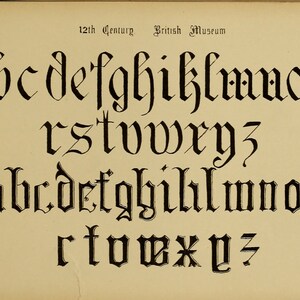 12th Century British Museum
bcdefghiklmno
rstvwxyz
abcdefghiklmno
rstvwxyz